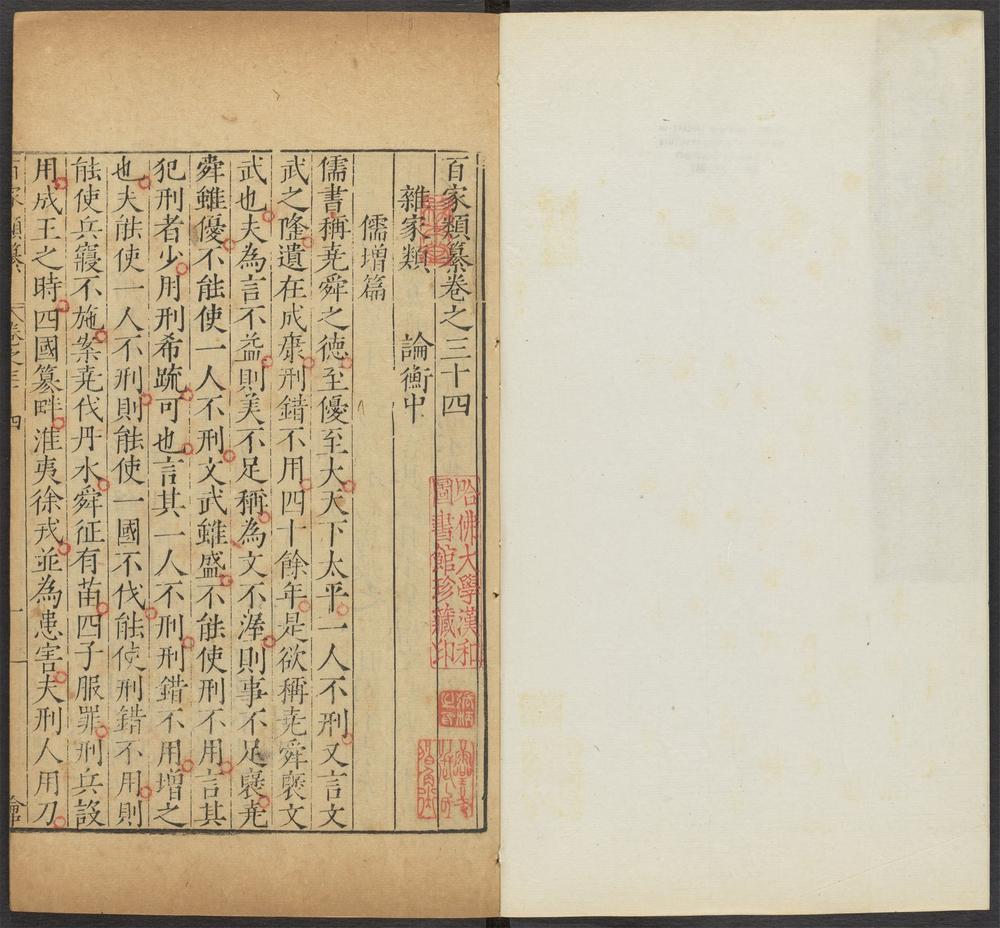 百家類纂卷之三十四
雜家類　論衡中
儒增篇
儒書稱堯舜之德至優至大天下太平一人不刑又言文
武之隆遺在成康刑錯不用四十餘年是欲稱堯舜褒文
武也夫為言不益則美不足稱為文不渥則事不足褒堯
舜雖優不能使一人不刑文武雖盛不能使刑不用言其
犯刑者少用刑希疏可也言其一人不刑刑錯不用增之
也夫能使一人不刑則能使一國不伐能使刑錯不用則
能使兵寢不施案堯伐丹水舜征有苗四子服罪刑兵設
用成王之時四國篡畔淮夷徐戎並為患害夫刑人用刀
百家類纂　卷之三十四　一
哈佛大學漢和
圖書館珍藏印